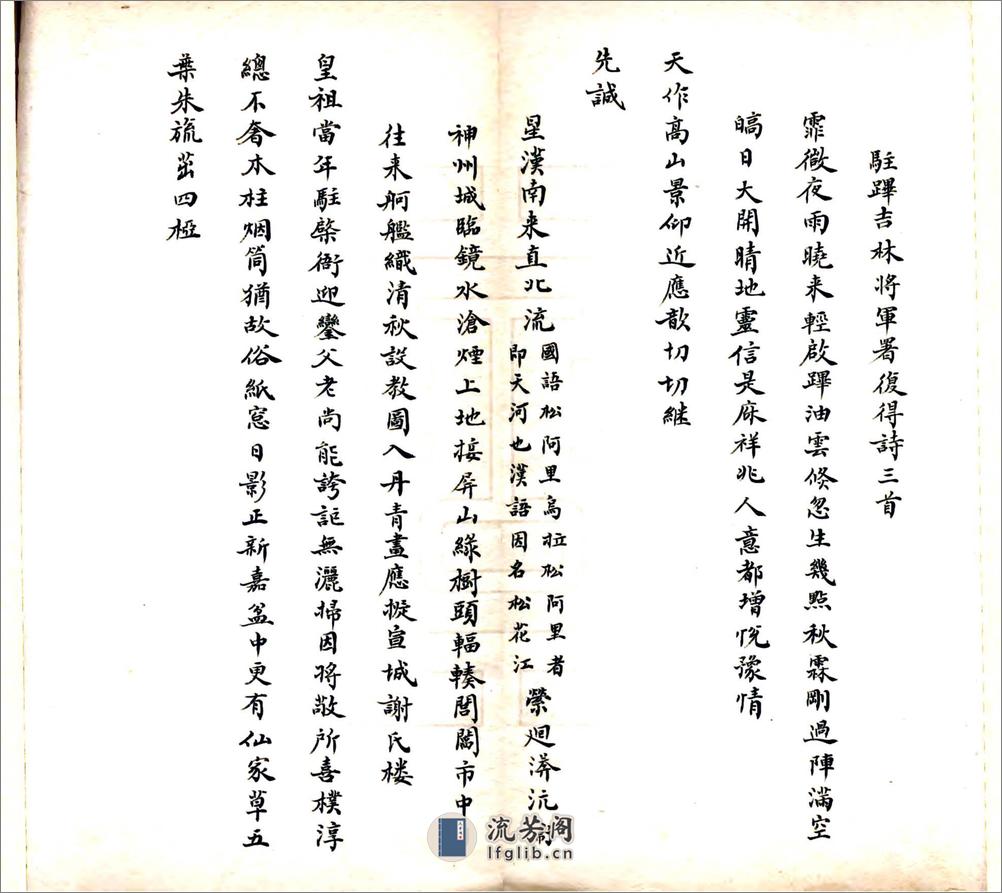 駐蹕吉林將軍署復得詩三首
霏微夜雨曉来輕啟蹕油雲倐忽生幾點秋霖剛過陣滿空
暠日大開晴地靈信是庥祥兆人意都增恱豫情
天作髙山景仰近應歆切切継
先誠
星漢南来直北流國語松阿里烏拉松阿里者
即天河也漢語因名松花江縈廻漭沆
神州城臨鏡水滄煙上地接屏山緑樹頭輻輳閭闠市中
往来舸艦織清秋設教圖入丹青畫應擬宣城謝氏楼
皇祖當年駐棨衙迎鑾父老尚能誇詎無灑掃因將敬所喜樸淳
總不奢木柱烟筒猶故俗紙窓日影正新嘉盆中更有仙家草五
葉朱旒茁四椏
流芳阁
lfglib.cn